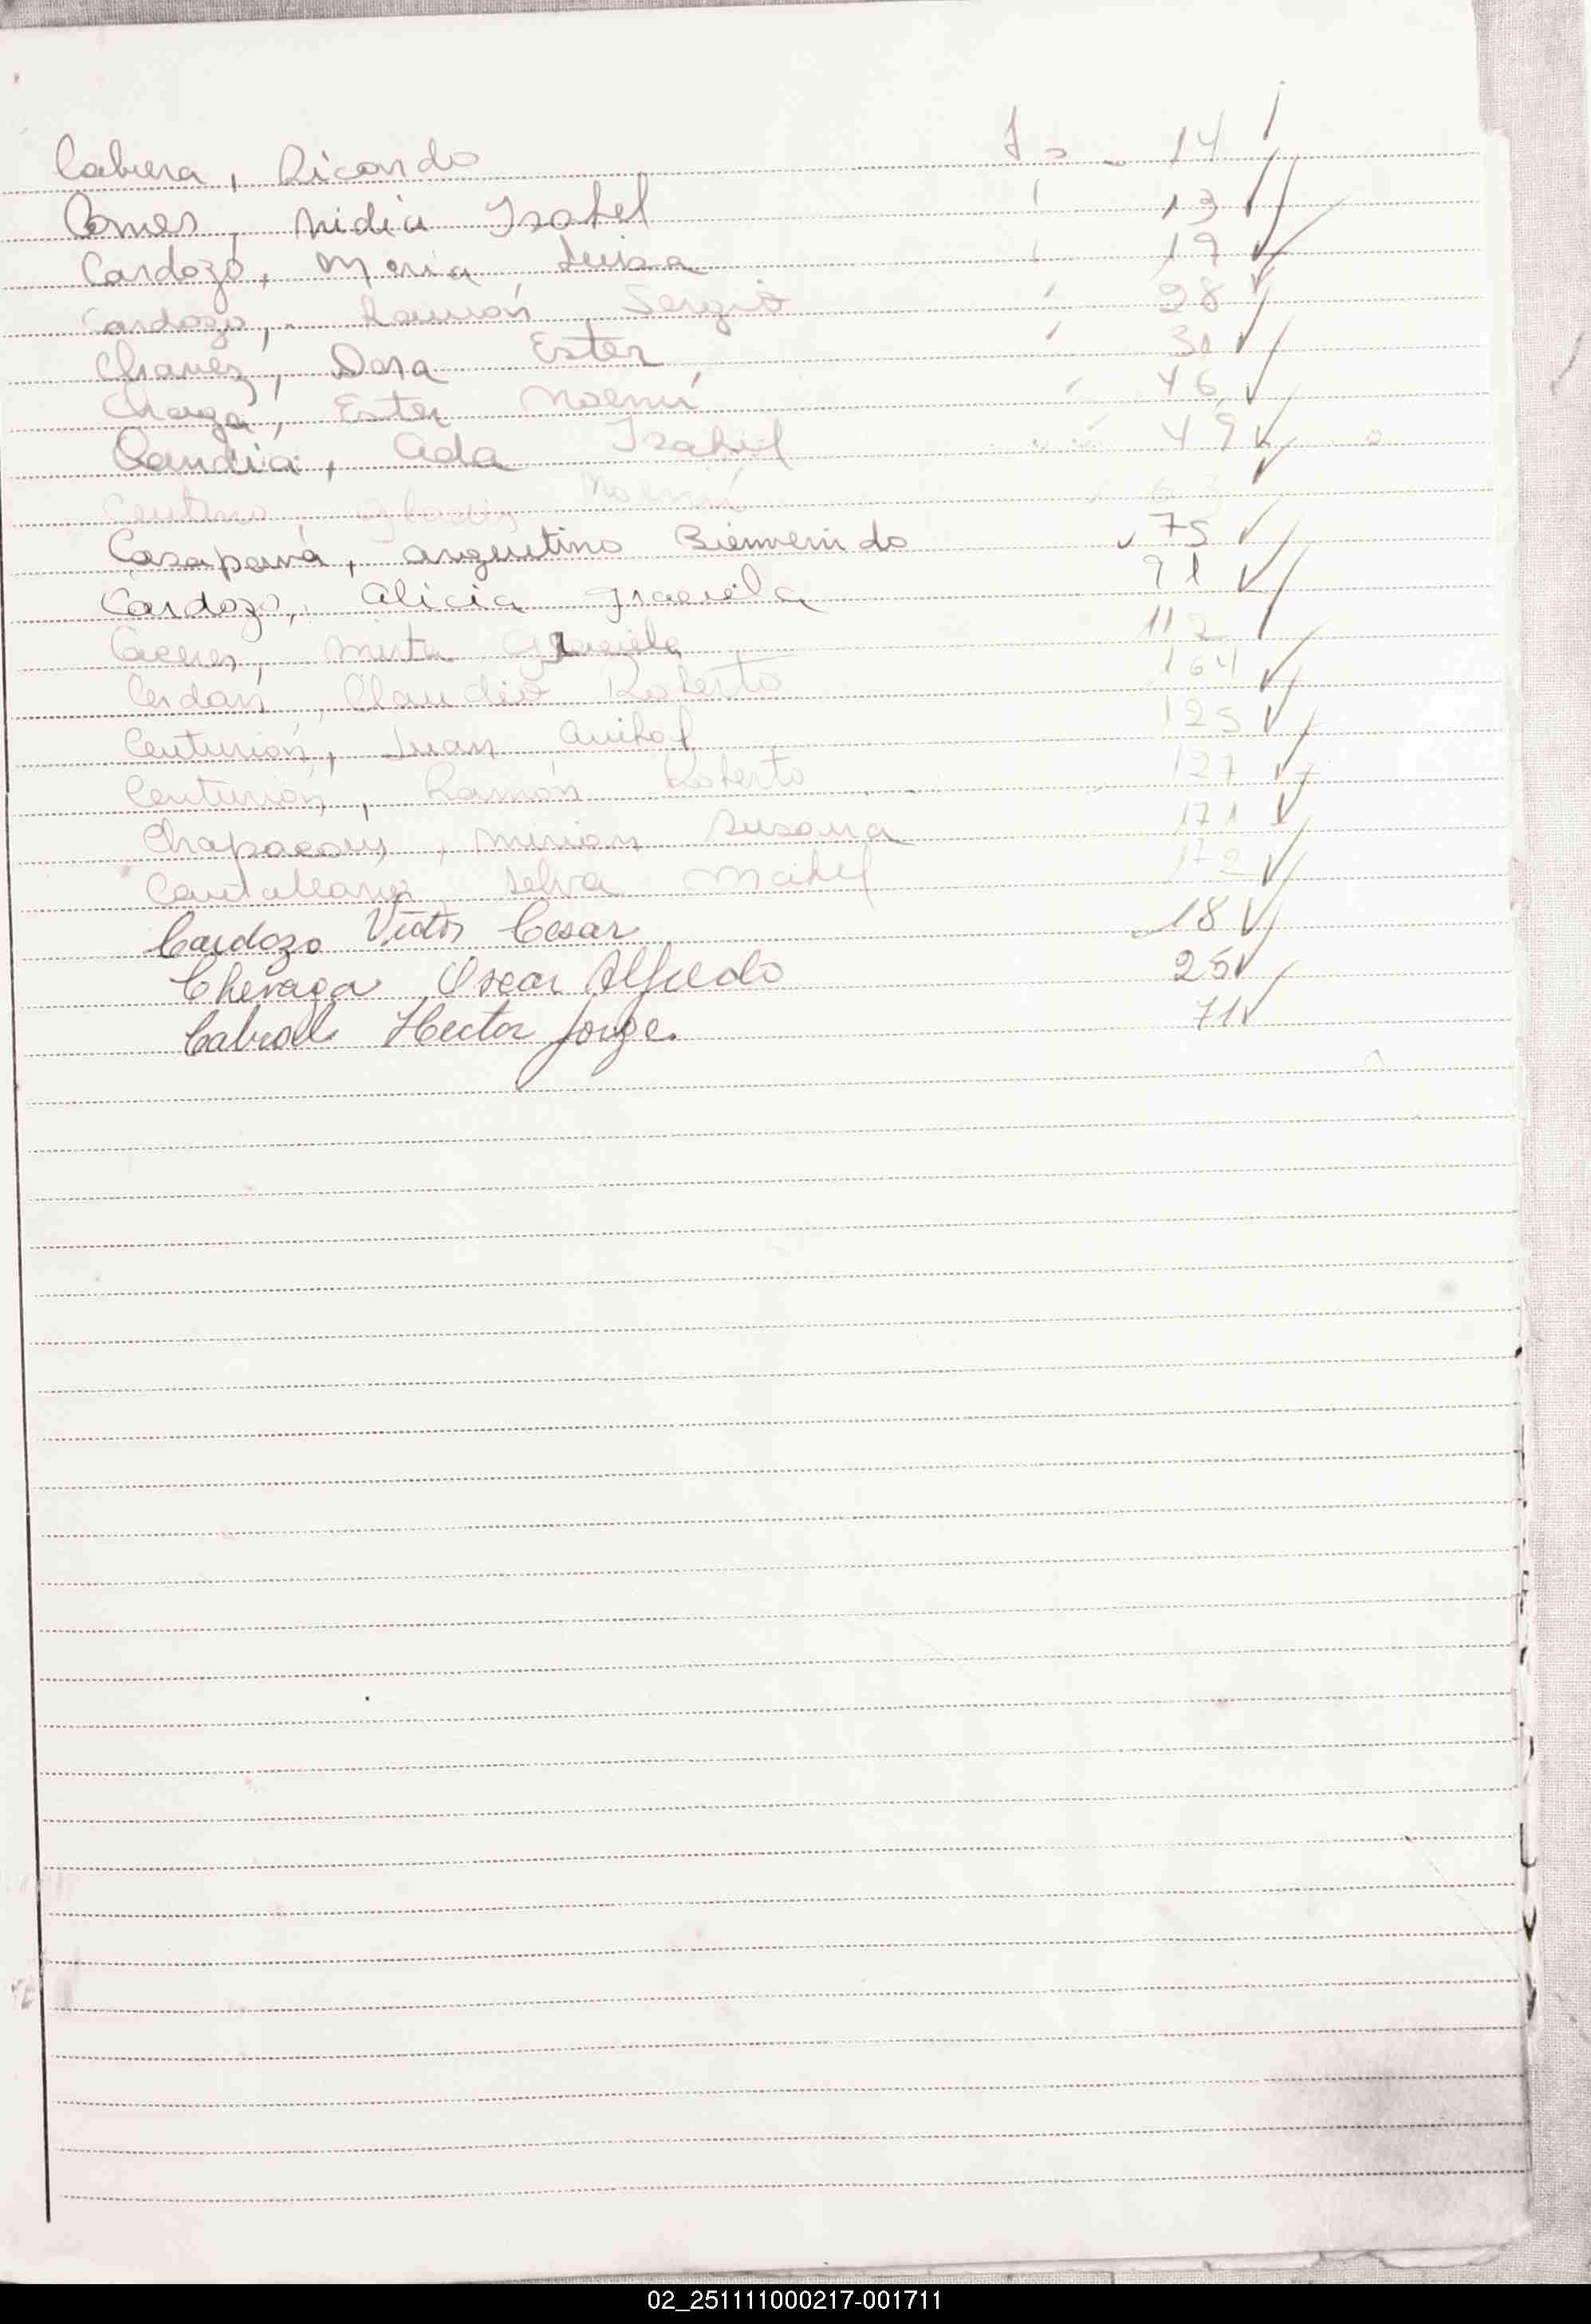 Cabrera, Ricardo Fo - 14
Comes, Nidia Isabel " 13
Cardozo, Maria Luisa " 19
Cardozo, Ramón Sergio " 28
Chavez, Dora Ester " 30
Chaga, Ester Noemí " 46
Candia, Ada Isabel " 49
Centeno, Gladis Noemí " 63
Casapavá, Argentino Bienvenido 75
Cardozo, Alicia Graciela 91
Caceres, Mirta Graciela 112
Cerdan, Claudio Roberto 164
Centurión, Juan Anibal 125
Centurión, Ramón Roberto 127
Mirian Susana 171
Selva Mabel 172
Cardozo Victor Cesar 18
Chevaga Oscar Alfredo 25
Cabral Hector Jorge. 71
02_251111000217-001711